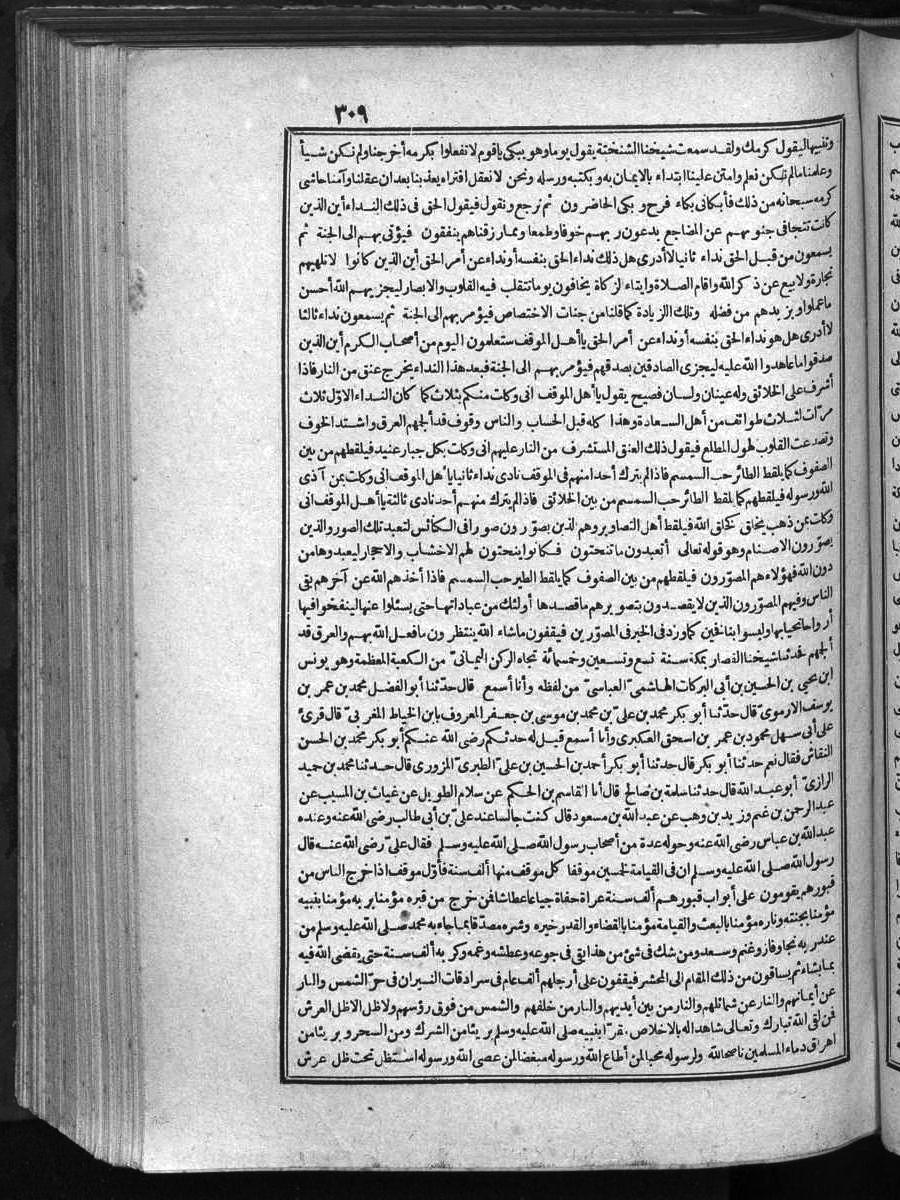 ٣٠٩
وتنبيها ليقول كرمك ولقد سمعت شيخنا الشنختة يقول يوما وهو يبكى يا قوم لا تفعلوا بكرمه أخرجنا ولم نكن شيأ
وعلمنا مالم نكن نعلم وامتن علينا ابتداء بالايمان به وبكتبه ورسله ونحن لا نعقل افتراه يعذبنا بعد ان عقلنا وآمنا حاشى
كرمه سبحانه من ذلك فأبكانى بكاء فرح وبكى الحاضرون ثم نرجع ونقول فيقول الحق فى ذلك النداء أين الذين
كانت تتجافى جنوبهم عن المضاجع يدعون ربهم خوفا وطمعا ومما رزقناهم ينفقون فيؤتى بهم الى الجنة ثم
يسمعون من قبل الحق نداء ثانيا لا أدرى هل ذلك نداء الحق بنفسه أو نداء عن أمر الحق أين الذين كانوا لا تلهيهم
تجارة ولا بيع عن ذكر الله واقام الصلاة وايتاء الزكاة يخافون يوما تتقلب فيه القلوب والابصار ليجزيهم الله أحسن
ما عملوا ويزيدهم من فضله وتلك الزيادة كما قلنا من جنات الاختصاص فيؤمر بهم الى الجنة ثم يسمعون نداء ثالثا
لا أدرى هل هو نداء الحق بنفسه أو نداء عن أمر الحق يا أهل الموقف ستعلمون اليوم من أصحاب الكرم أين الذين
صدقوا ما عاهدوا الله عليه ليجزى الصادقين بصدقهم فيؤمر بهم الى الجنة فبعد هذا النداء يخرج عنق من النار فاذا
أشرف على الخلائق وله عينان ولسان فصيح يقول يا أهل الموقف انى وكلت منكم بثلاث كما كان النداء الاول ثلاث
مرات لثلاث طوائف من أهل السعادة وهذا كله قبل الحساب والناس وقوف قد ألجمهم العرق واشتد الخوف
وتصدعت القلوب لهول المطلع فيقول ذلك العنق المستشرف من النار عليهم انى وكلت بكل جبار عنيد فيلقطهم من بين
الصفوف كما يلقط الطائر حب السمسم فاذا لم يترك أحدا منهم فى الموقف نادى نداء ثانيا يا أهل الموقف انى وكلت بمن آذى
الله ورسوله فيلقطهم كما يلقط الطائر حب السمسم من بين الخلائق فاذا لم يترك منهم أحد نادى ثالثة يا أهل الموقف انى
وكلت بمن ذهب يخلق كخلق الله فيلقط أهل التصاوير وهم الذين يصورون صورا فى الكنائس لتعبد تلك الصور والذين
يصورون الاصنام وهو قوله تعالى أتعبدون ما تنحتون فكانوا ينحتون لهم الاخشاب والاحجار ليعبدوها من
دون الله فهؤلاء هم المصورون فيلقطهم من بين الصفوف كما يلقط الطير حب السمسم فاذا أخذهم الله عن آخرهم بقى
الناس وفيهم المصورون الذين لا يقصدون بتصويرهم ما قصدها أولئك من عباداتها حتى يسئلوا عنها لينفخوا فيها
أرواحا تحيا بها وليسوا بنافخين كما ورد فى الخبر فى المصورين فيقفون ما شاء الله ينتظرون ما فعل الله بهم والعرق قد
ألجمهم فحدثنا شيخنا القصار بمكة سنة تسع وتسعين وخمسمائة تجاه الركن اليمانى من الكعبة المعظمة وهو يونس
ابن يحيى بن الحسين بن أبى البركات الهاشمى العباسى من لفظه وأنا أسمع قال حدثنا أبو الفضل محمد بن عمر بن
يوسف الارموى قال حدثنا أبو بكر محمد بن على بن محمد بن موسى بن جعفر المعروف بابن الخياط المغربى قال قرئ
على أبى سهل محمود بن عمر بن اسحق العكبرى وأنا أسمع قيل له حدثكم رضى الله عنكم أبو بكر محمد بن الحسن
النقاش فقال نعم حدثنا أبو بكر قال حدثنا أبو بكر أحمد بن الحسين بن على الطبرى المزورى قال حدثنا محمد بن حميد
الرازى أبو عبد الله قال حدثنا سلمة بن صالح قال أنا القاسم بن الحكم عن سلام الطويل عن غياث بن المسيب عن
عبد الرحمن بن غنم وزيد بن وهب عن عبد الله بن مسعود قال كنت جالسا عند على بن أبى طالب رضى الله عنه وعنده
عبد الله بن عباس رضى الله عنه وحوله عدة من أصحاب رسول الله صلى الله عليه وسلم فقال على رضى الله عنه قال
رسول الله صلى الله عليه وسلم ان فى القيامة لخمسين موقفا كل موقف منها ألف سنة فأول موقف اذا خرج الناس من
قبورهم يقومون على أبواب قبورهم ألف سنة عراة حفاة جياعا عطاشا فمن خرج من قبره مؤمنا بربه مؤمنا بنبيه
مؤمنا بجنته وناره مؤمنا بالبعث والقيامة مؤمنا بالقضاء والقدر خيره وشره مصدقا بما جاء به محمد صلى الله عليه وسلم من
عند ربه نجا وفاز وغنم وسعد ومن شك فى شئ من هذا بقى فى جوعه وعطشه وغمه وكربه ألف سنة حتى يقضى الله فيه
بما يشاء ثم يساقون من ذلك المقام الى المحشر فيقفون على أرجلهم ألف عام فى سرادقات النيران فى حر الشمس والنار
عن أيمانهم والنار عن شمائلهم والنار من بين أيديهم والنار من خلفهم والشمس من فوق رؤسهم ولا ظل الا ظل العرش
فمن لقى الله تبارك وتعالى شاهدا له بالاخلاص مقرا بنبيه صلى الله عليه وسلم بريئا من الشرك ومن السحر وبريئا من
اهراق دماء المسلمين ناصحا لله ولرسوله محبا لمن أطاع الله ورسوله مبغضا لمن عصى الله ورسوله استظل تحت ظل عرش